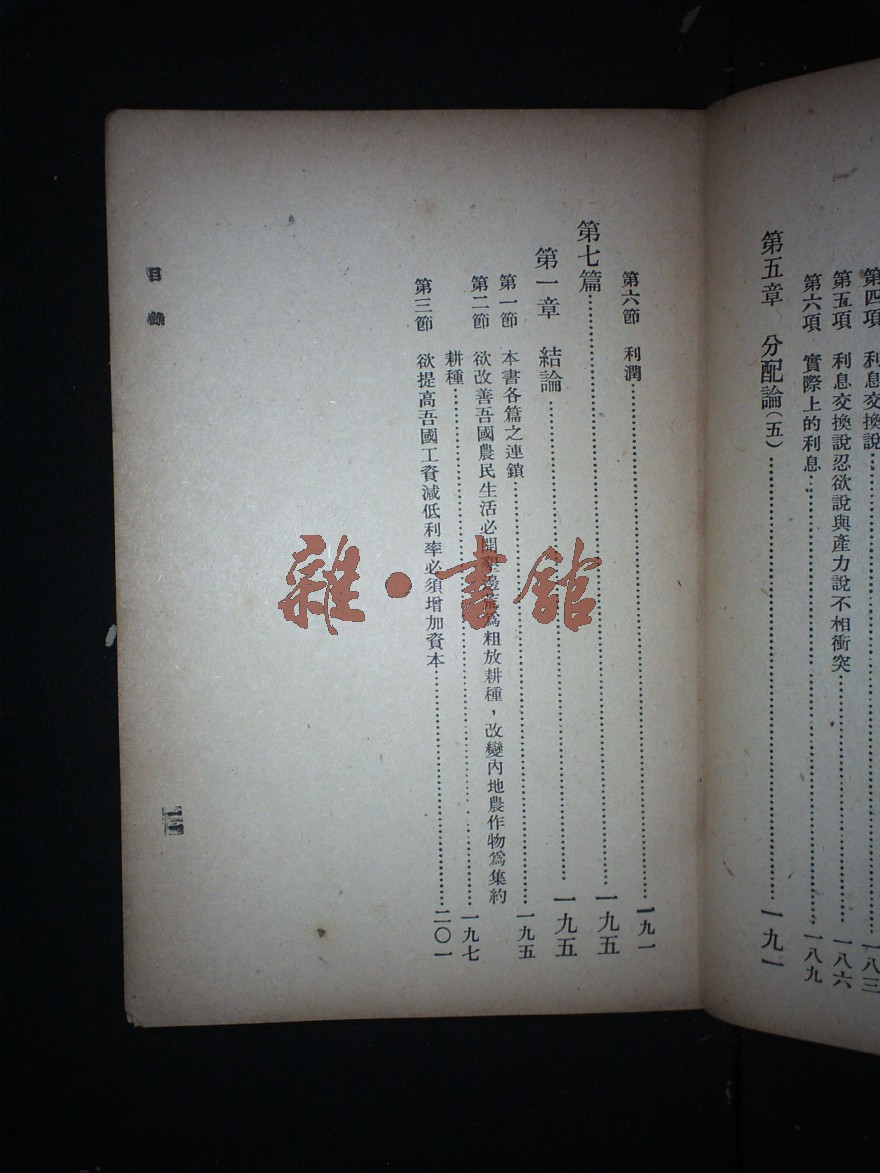 第四項 利息交換說……一八三
第五項 利息交換說忍欲說與產力說不相衝突……一八六
第六項 實際上的利息……一八九
第五章 分配論(五)……一九一
第六節 利潤……一九一
第七篇……一九五
第一章 結論……一九五
第一節 本書各篇之連鎖……一九五
第二節 欲改善吾國農民生活必開墾邊荒為粗放耕種，改變內地農作物為集約
耕種……一九七
第三節 欲提高吾國工資減低利率必須增加資本……二〇一
目錄
雜·書館